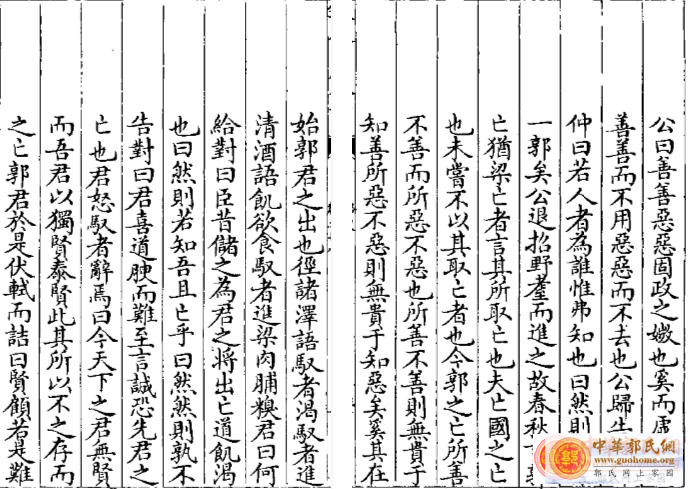 公曰善善惡惡固政之媺也奚而虛
善善而不用惡惡而不去也公歸
仲曰若人者為誰惟弗知也曰然則
一郭矣公退招野耋而進之故春秋
亡猶梁亡者言其所取亡也夫亡國之亡
也未嘗不以其取亡者也今郭之亡所善
不善而所惡不惡也所善不善則無貴于
知善所惡不惡則無貴于知惡矣奚其在
始郭君之出也徑諸澤語馭者渴馭者進
清酒語飢欲食馭者進梁肉脯糗君曰何
給對曰臣昔儲之為君之將出亡道飢渴
也曰然則若知吾且亡乎曰然然則孰不
告對曰君喜道腴而難至言誠恐先君之
亡也君怒馭者辭焉曰今天下之君無賢
而吾君以獨賢泰賢此其所以不之存而
之亡郭君於是伏軾而詰曰賢顧若是難
中華郭氏網
www.guohome.org
郭氏网上家园